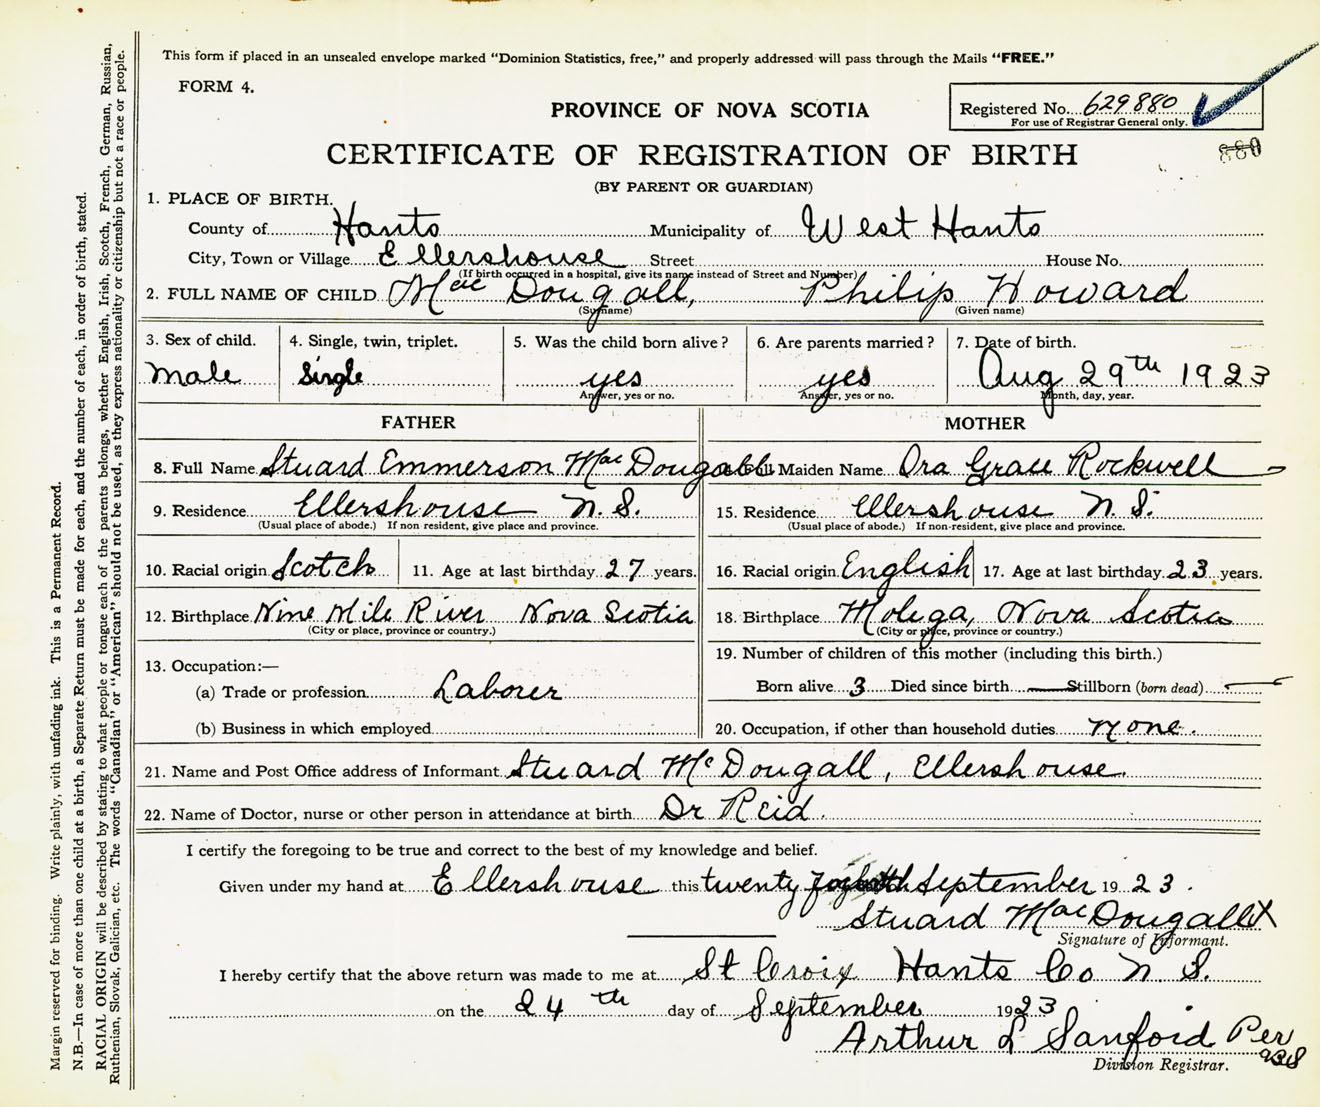 This form if placed in an unsealed envelope marked "Dominion Statistics, free," and properly addressed will pass through the Mails "FREE."
FORM 4.
PROVINCE OF NOVA SCOTIA
Registered No. 629880
For use of Registrar General only.
880
CERTIFICATE OF REGISTRATION OF BIRTH
(BY PARENT OR GUARDIAN)
1. PLACE OF BIRTH.
County of Hants Municipality of West Hants
City, Town or Village Ellershouse Street House No.
(If birth occurred in a hospital, give its name instead of Street and Number)
2. FULL NAME OF CHILD MacDougall, Philip Howard
(Surname) (Given name)
3. Sex of child. 4. Single, twin, triplet. 5. Was the child born alive? 6. Are parents married? 7. Date of birth.
Male Single yes yes Aug 29th 1923
Answer, yes or no. Answer, yes or no. Month, day, year.
FATHER MOTHER
8. Full Name Stuard Emmerson MacDougall Full Maiden Name Ora Grace Rockwell
9. Residence Ellershouse N.S. 15. Residence Ellershouse N.S.
(Usual place of abode.) If non-resident, give place and province. (Usual place of abode.) If non-resident, give place and province.
10. Racial origin Scotch 11. Age at last birthday 27 years. 16. Racial origin English 17. Age at last birthday 23 years.
12. Birthplace Nine Mile River Nova Scotia 18. Birthplace Molega, Nova Scotia
(City or place, province or country.) (City or place, province or country.)
13. Occupation:— 19. Number of children of this mother (including this birth.)
(a) Trade or profession Laborer Born alive 3 Died since birth — Stillborn (born dead) —
(b) Business in which employed 20. Occupation, if other than household duties none.
21. Name and Post Office address of Informant Stuard McDougall, Ellershouse.
22. Name of Doctor, nurse or other person in attendance at birth Dr Reid.
I certify the foregoing to be true and correct to the best of my knowledge and belief.
Given under my hand at Ellershouse this twenty September 1923.
Stuard MacDougall X
Signature of Informant.
I hereby certify that the above return was made to me at St Croix Hants Co N.S.
on the 24th day of September 1923
Arthur L Sanford Per
Division Registrar.
Margin reserved for binding. Write plainly, with unfading ink. This is a Permanent Record.
N.B.—In case of more than one child at a birth, a Separate Return must be made for each, and the number of each, in order of birth, stated.
RACIAL ORIGIN will be described by stating to what people or tongue each of the parents belongs, whether English, Irish, Scotch, French, German, Russian,
Ruthenian, Slovak, Galician, etc. The words "Canadian" or "American" should not be used, as they express nationality or citizenship but not a race or people.